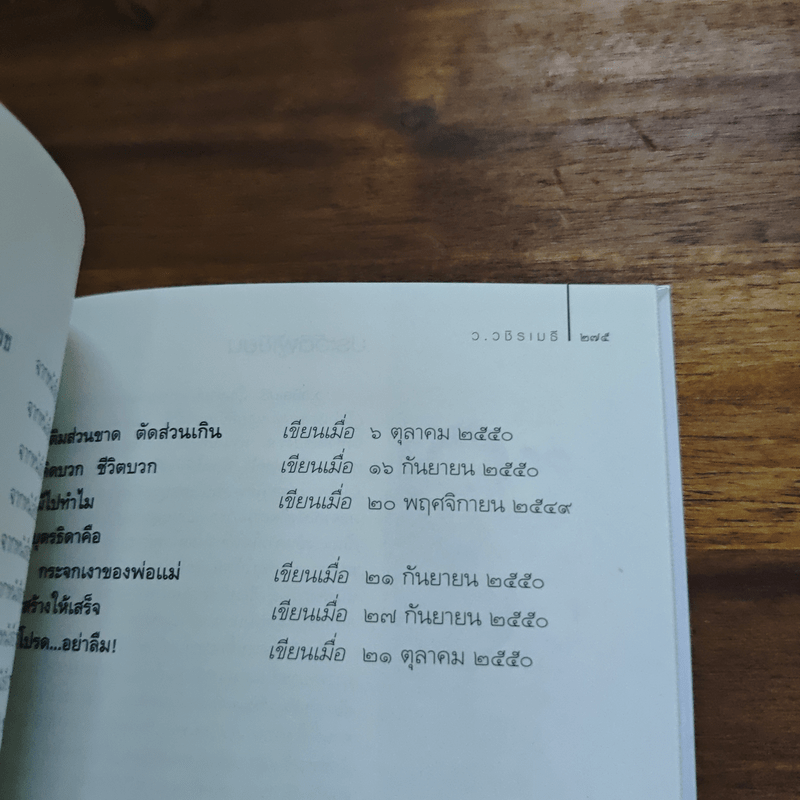 ว.วชิรเมธี ๒๗๕
เติมส่วนขาด ตัดส่วนเกิน เขียนเมื่อ ๖ ตุลาคม ๒๕๕๐
คิดบวก ชีวิตบวก เขียนเมื่อ ๑๖ กันยายน ๒๕๕๐
ไปทำไม เขียนเมื่อ ๒๐ พฤศจิกายน ๒๕๔๙
บุตรธิดาคือ
กระจกเงาของพ่อแม่ เขียนเมื่อ ๒๑ กันยายน ๒๕๕๐
สร้างให้เสร็จ เขียนเมื่อ ๒๗ กันยายน ๒๕๕๐
โปรด...อย่าลืม! เขียนเมื่อ ๒๑ ตุลาคม ๒๕๕๐